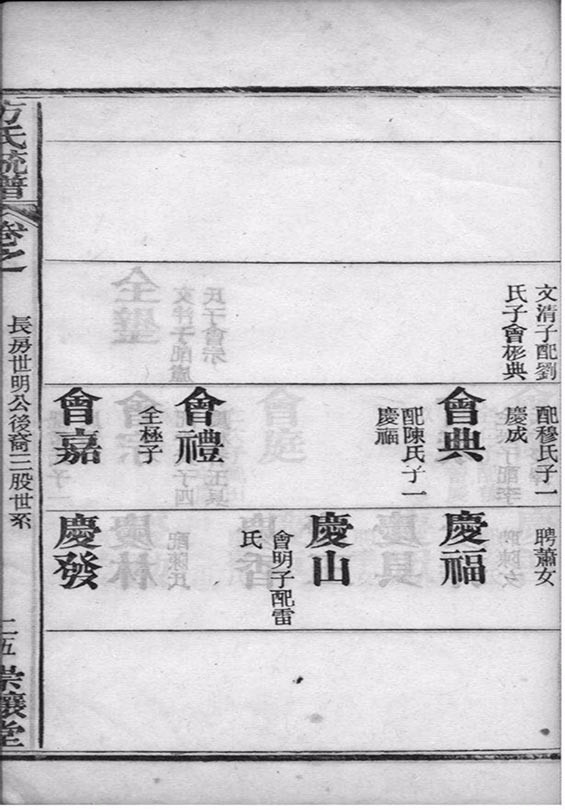 文清子配劉
氏子會彬典
配穆氏子一
慶成
會典
配陳氏子一
慶福
會禮
全極子
會嘉
聘蕭女
慶福
慶山
會明子配雷
氏
慶發
方氏統譜
卷之一
長房世明公後裔二股世系
二五
崇讓堂